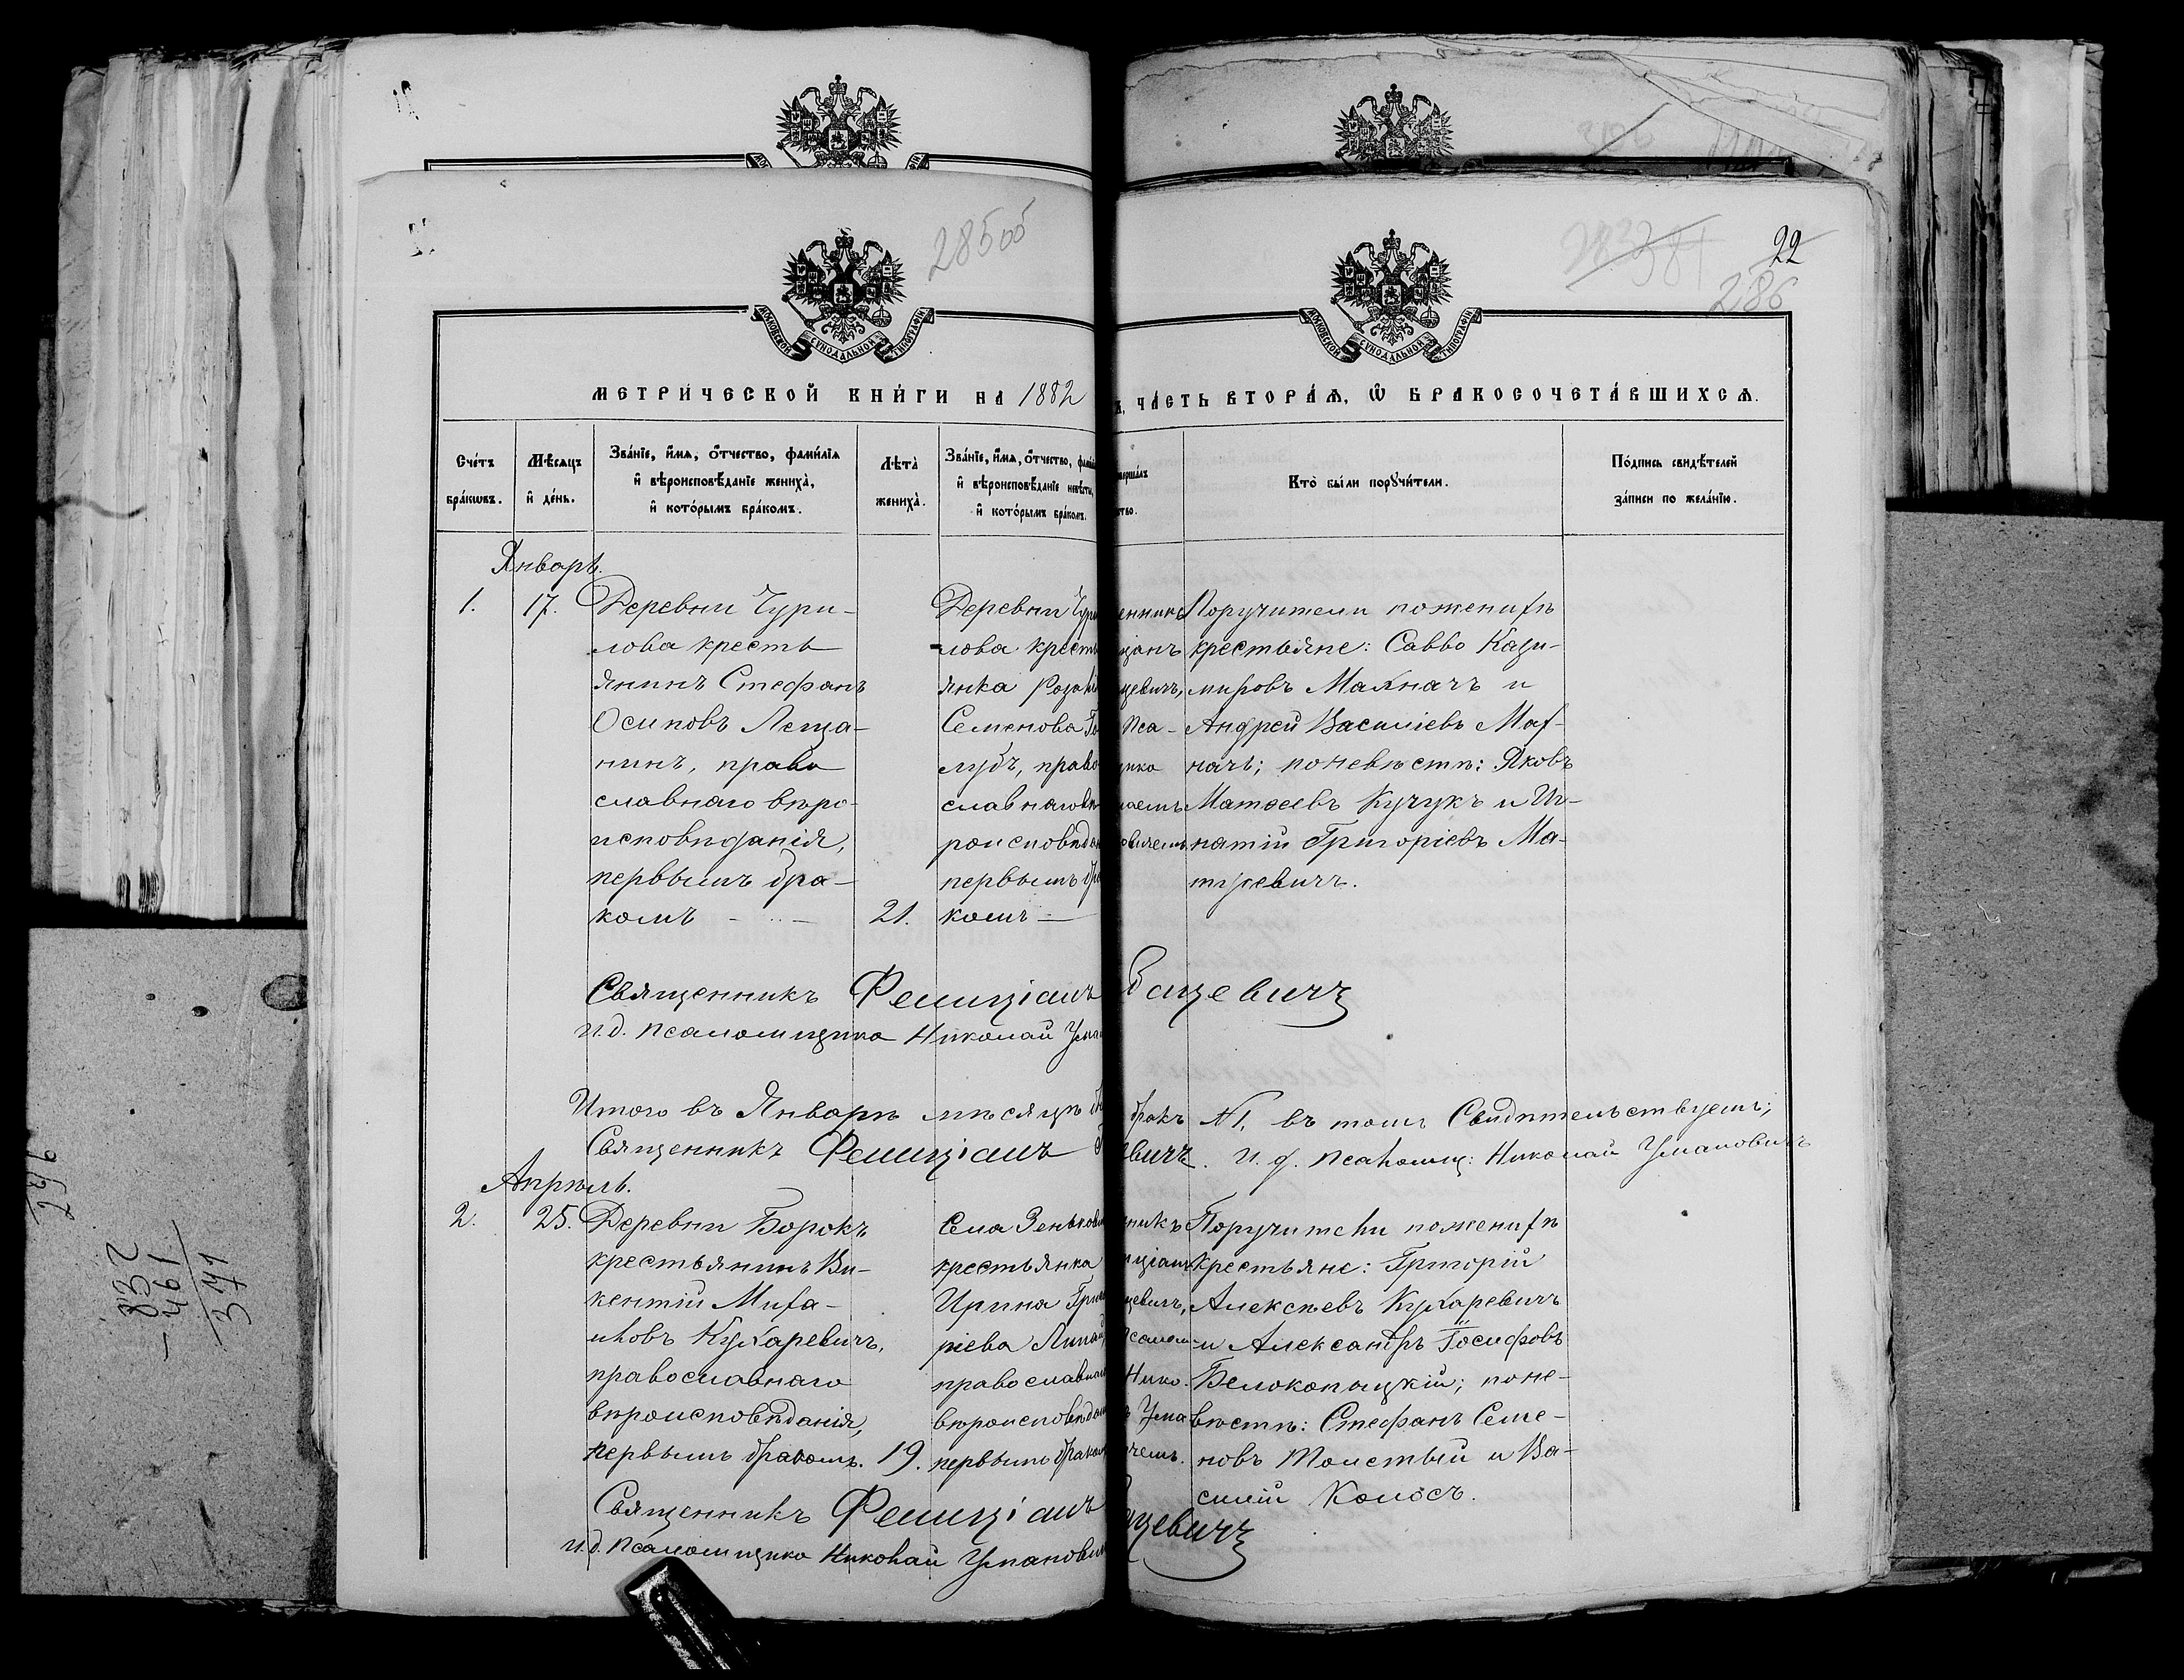 285 об
22
286
МОСКОВСКОЙ СѴНОДАЛЬНОЙ ТИПОГРАФІИ
МОСКОВСКОЙ СѴНОДАЛЬНОЙ ТИПОГРАФІИ
МЕТРИ́ЧЕСКОЙ КНИ́ГИ НА 1882
ЧА́СТЬ ВТОРА́Ѧ, Ѽ БРАКОСОЧЕТА́ВШИХСѦ.
Сче́тъ бра́кѡвъ.
Мѣ́сяцъ и҆ де́нь.
Зва́нїе, и҆́мѧ, ѻ҆́тчество, фами́лїѧ и҆ вѣроисповѣ́данїе жениха̀, и҆ кото́рымъ бра́комъ.
Лѣта̀ жениха̀.
Зва́нїе, и҆́мѧ, ѻ҆́тчество, и҆ вѣроисповѣ́данїе невѣ́сты, и҆ кото́рымъ бра́комъ.
Кто̀ бы́ли порꙋчи́тели.
По́дпись свидѣ́телей за́писи по жела́нїю.
Январь.
1.
17.
Деревни Чури-
лова кресть
янинъ Стефанъ
Осиповъ Леща-
нинъ, право
славнаго вѣро-
исповѣданія,
первымъ бра-
комъ
21.
Деревни Чури
лова кресть
янка
Семенова Го
лубъ, право
славнаго вѣ
роисповѣдан
первымъ бра
комъ
Поручители по женихѣ
крестьяне: Савво Кази-
мировъ Махначъ и
Андрей Василіевъ Мах-
начъ; по невѣстѣ: Яковъ
Матѳеевъ Кучукъ и Иг-
натій Григоріевъ Ма-
тусевичъ.
Священникъ Фелиціанъ Бацевичъ
И.д. псаломщика Николай Ума
Итого въ Январѣ мѣсяцѣ бракъ №1, въ томъ Свидѣтельствуемъ;
Священникъ Фелиціанъ евичъ. И.д. псаломщ: Николай Умановичъ
Апрѣль.
2.
25.
Деревни Борокъ
крестьянинъ Ви-
кентій Миха-
иловъ Кухаревичъ,
православнаго
вѣроисповѣданія,
первымъ бракомъ.
19.
Села Зеньков
крестьянка
Ирина Григо
ріева
православнаго
вѣроисповѣдан
первымъ бракомъ
Поручители по женихѣ
крестьяне: Григорій
Алексѣевъ Кухаревичъ
и Александръ Іосифовъ
Белокопыцкій; по не-
вѣстѣ: Стефанъ Семе-
новъ Толстый и Ва-
силій Колосъ.
Священникъ Фелиціанъ ацевичъ
И.д. псаломщика Николай Уманович
832
461
371